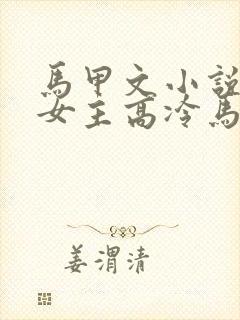 馬甲文小說
女主高冷馬
姜渭清